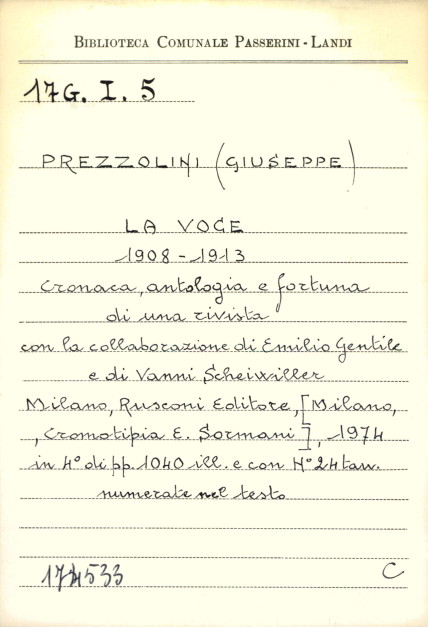 BIBLIOTECA COMUNALE PASSERINI-LANDI
17G. I. 5
PREZZOLINI (GIUSEPPE)
LA VOCE
1908-1913
Cronaca, antologia e fortuna
di una rivista
con la collaborazione di Emilio Gentile
e di Vanni Scheiwiller
Milano, Rusconi Editore, [Milano,
, Cromotipia E. Sormani], 1974
in 4° di pp. 1040 ill. e con N° 24 tav.
numerate nel testo
174533 C